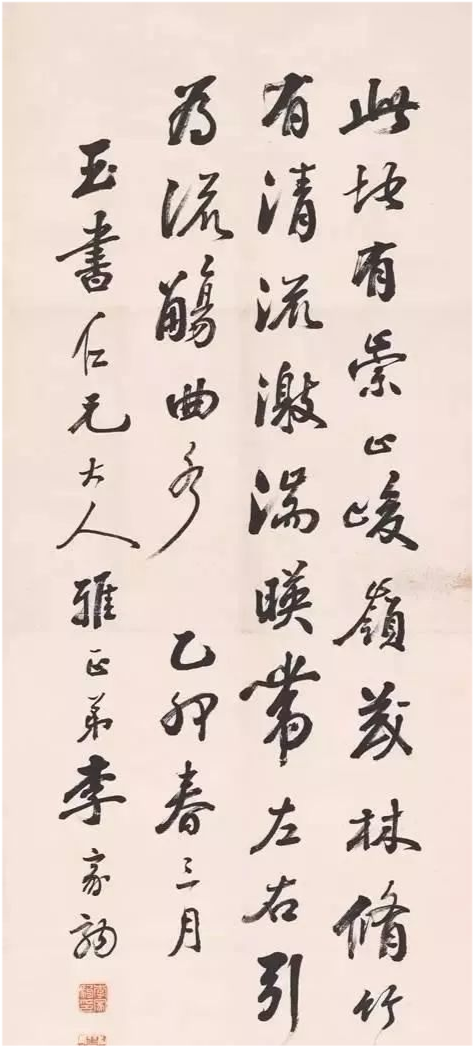 此地有崇山峻嶺茂林脩竹
有清流激湍暎帶左右引
為流觴曲水 乙卯春三月
玉書仁兄大人雅正弟李家駒